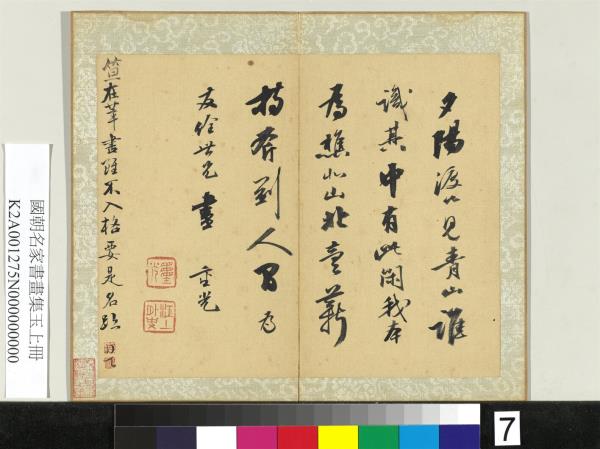 夕陽渡口見青山誰
識其中有此閑我本
為樵北山北賣薪
持斧到人間為
世兄畫 重光
江上外史
笪在莘書雖不入格要是名跡
國朝名家書畫集玉上冊
K2A001275N000000000
7